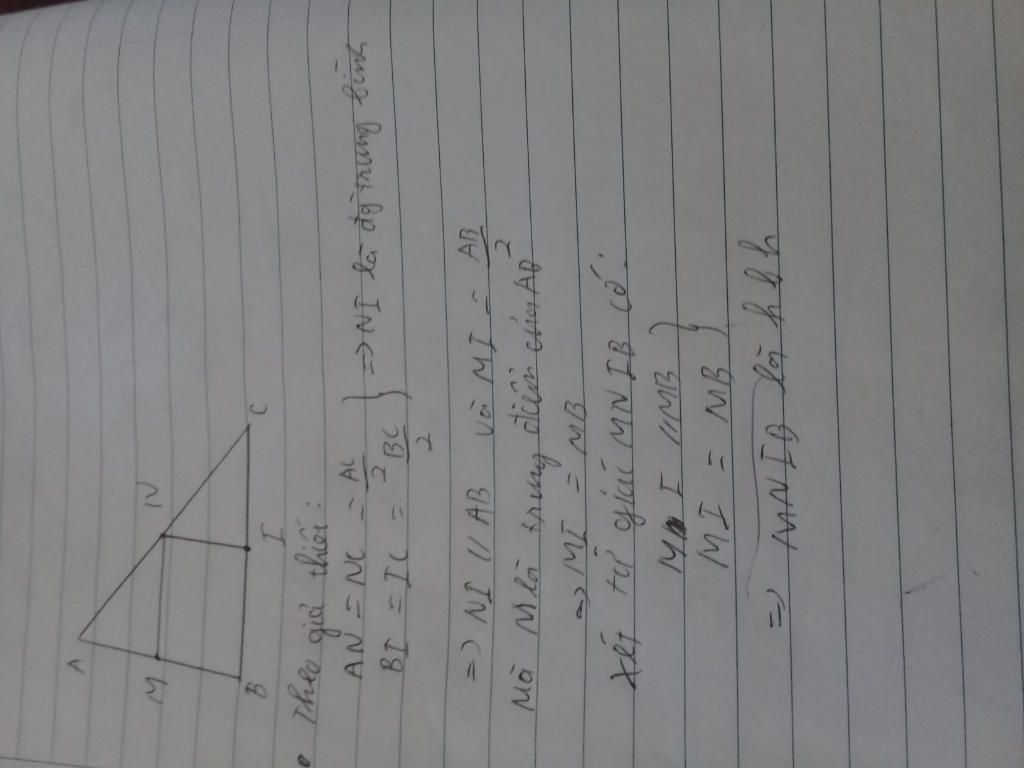 A
M
N
B
I
C
Theo giả thiết:
AN = NC = AC/2
BI = IC = BC/2 } => NI là đg trung bình
=> NI // AB và MI = AB/2
Mà M là trung điểm của AB
=> MI = MB
Xét tứ giác MNIB có:
M I // MB
MI = MB }
=> MNIB là hbh